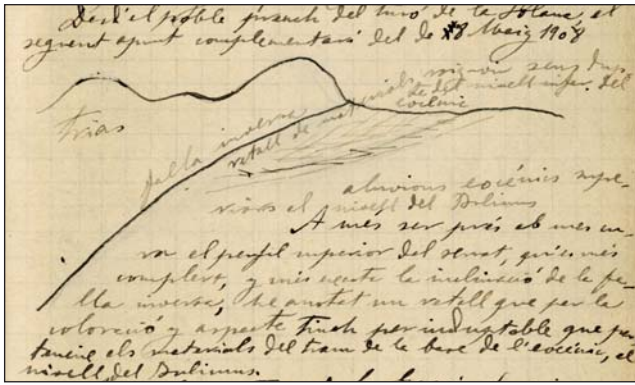 Desd' el poble pranch del turó de la Solana, el
seguent apunt complementari del de 8 Maig 1908
trias
falla inversa
retall de materials
nivell infer. del
eocenic
aluvions eocénics supe-
riors al nivell del Bulimus
A més ser prés ab mes cu-
ra el perfil superior del serrat, qu'es més
complert, y més exacte la inclinació de la fa-
lla inversa, he anotat un retall que per la
coloració y aspecte tinch per induptable que per-
taneixe els materials del tram de la base de l'eocénic, el
nivell del Bulimus.